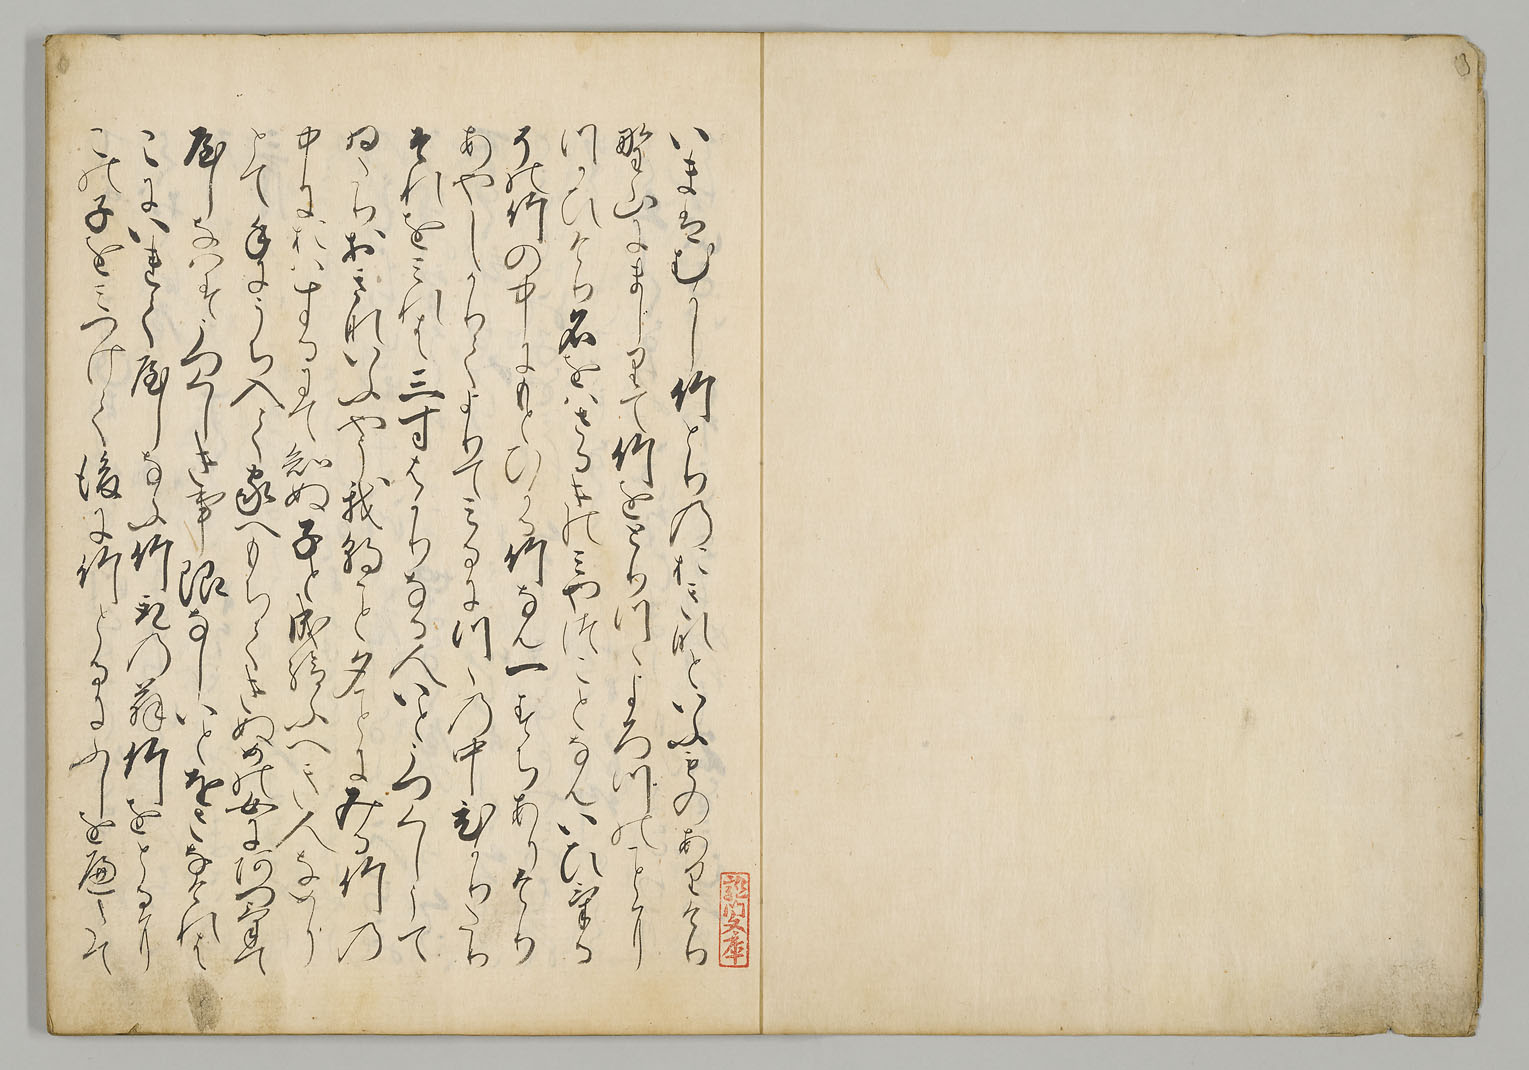 いまはむかし竹とりのおきなといふもの有けり
野山にましりて竹をとりつゝよろつのことに
つかひけり名をはさるきのみやつことなんいひける
その竹の中にもとひかる竹なん一すちありけり
あやしかりてよりてみるにつゝの中ひかりたり
それをみれは三寸はかりなる人いとうつくしうて
ゐたりおきないふやう我朝こと夕ことにみる竹の
中におはするにて知ぬ子と成給ふへき人なめり
とて手にうち入て家へもちてきぬめの女にあつけて
屋しなはすうつくしき事限なしいとをさなけれは
こにいれて屋しなふ竹取の翁竹をとるに
この子をみつけて後に竹とるにふしを隔てゝ
龍門文庫